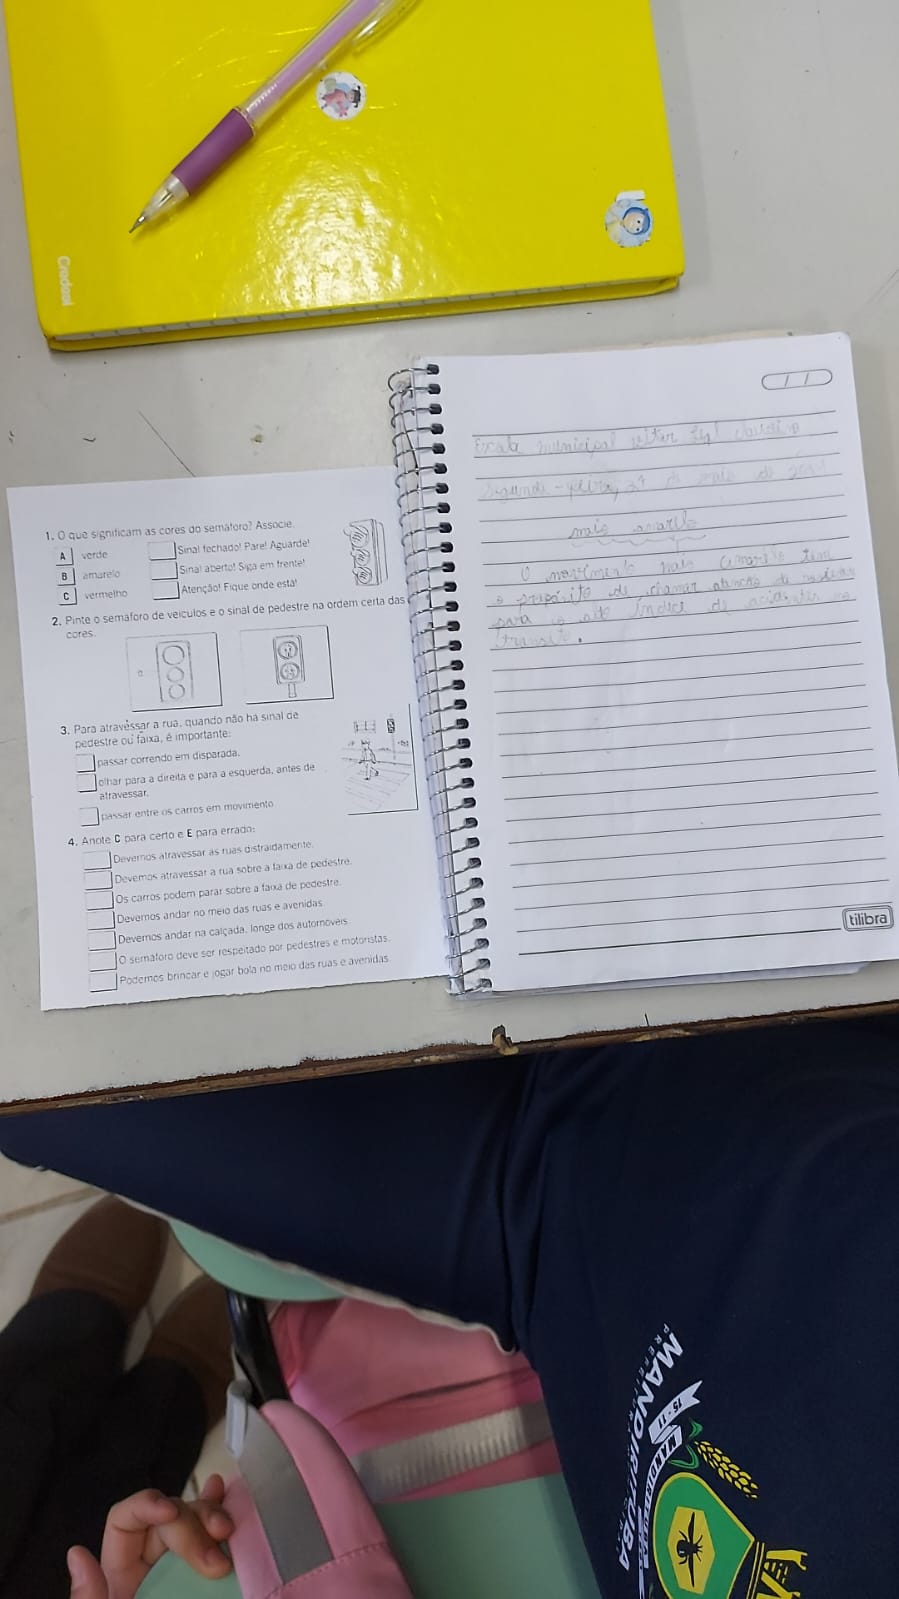 Credeal
1. O que significam as cores do semáforo? Associe.
A verde Sinal fechado! Pare! Aguarde!
B amarelo Sinal aberto! Siga em frente!
C vermelho Atenção! Fique onde está!
2. Pinte o semáforo de veículos e o sinal de pedestre na ordem certa das
cores.
3. Para atravessar a rua, quando não há sinal de
pedestre ou faixa, é importante:
passar correndo em disparada.
olhar para a direita e para a esquerda, antes de
atravessar.
passar entre os carros em movimento.
4. Anote C para certo e E para errado:
Devemos atravessar as ruas distraidamente.
Devemos atravessar a rua sobre a faixa de pedestre.
Os carros podem parar sobre a faixa de pedestre.
Devemos andar no meio das ruas e avenidas.
Devemos andar na calçada, longe dos automóveis.
O semáforo deve ser respeitado por pedestres e motoristas.
Podemos brincar e jogar bola no meio das ruas e avenidas.
municipal
de maio de
maio amarelo
O movimento maio amarelo tem
o propósito de chamar atenção da
para o alto índice de acidentes no
trânsito.
tilibra
MANDIRITUBA
15-11